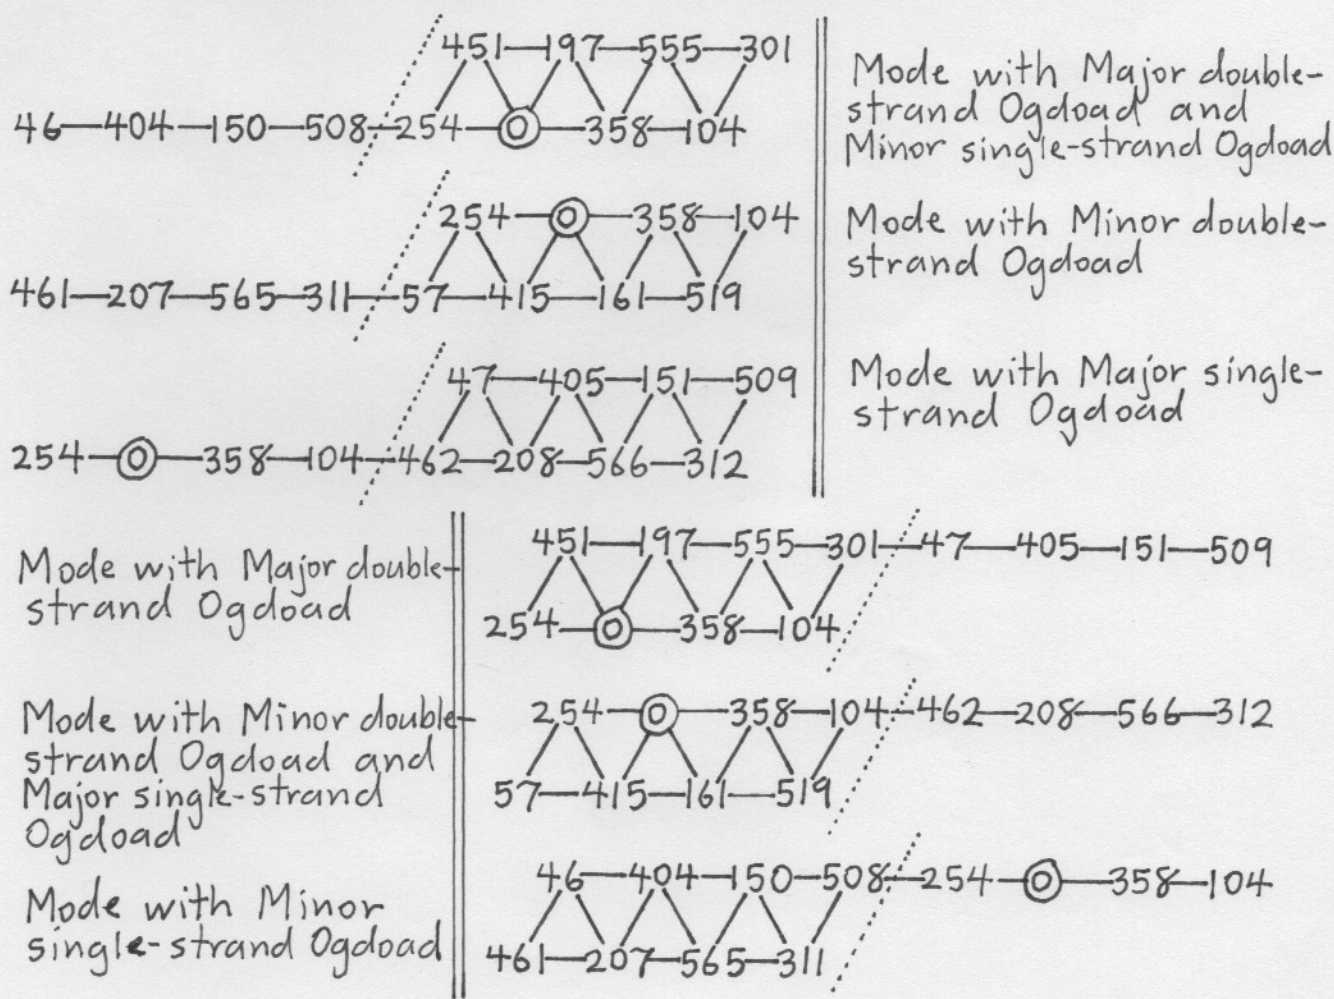 451—197—555—301
46—404—150—508—254—0—358—104
Mode with Major double-
strand Ogdoad and
Minor single-strand Ogdoad
254—0—358—104
461—207—565—311—57—415—161—519
Mode with Minor double-
strand Ogdoad
47—405—151—509
254—0—358—104—462—208—566—312
Mode with Major single-
strand Ogdoad
Mode with Major double-
strand Ogdoad
451—197—555—301—47—405—151—509
254—0—358—104
Mode with Minor double-
strand Ogdoad and
Major single-strand
Ogdoad
254—0—358—104—462—208—566—312
57—415—161—519
Mode with Minor
single-strand Ogdoad
46—404—150—508—254—0—358—104
461—207—565—311